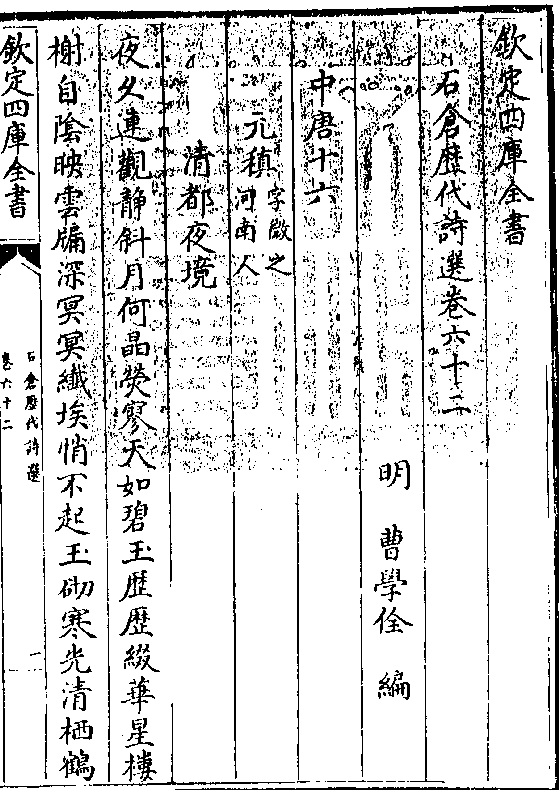 欽定四庫全書
石倉歴代詩選卷六十二
明　曹學佺　編
中唐十六
元稹字微之河南人
清都夜境
夜久連觀静斜月何晶熒寥天如碧玉歴歴綴華星樓
榭自陰映雲牖深冥冥纎埃悄不起玉砌寒光清栖鶴
欽定四庫全書
石倉歴代詩選
卷六十二
一